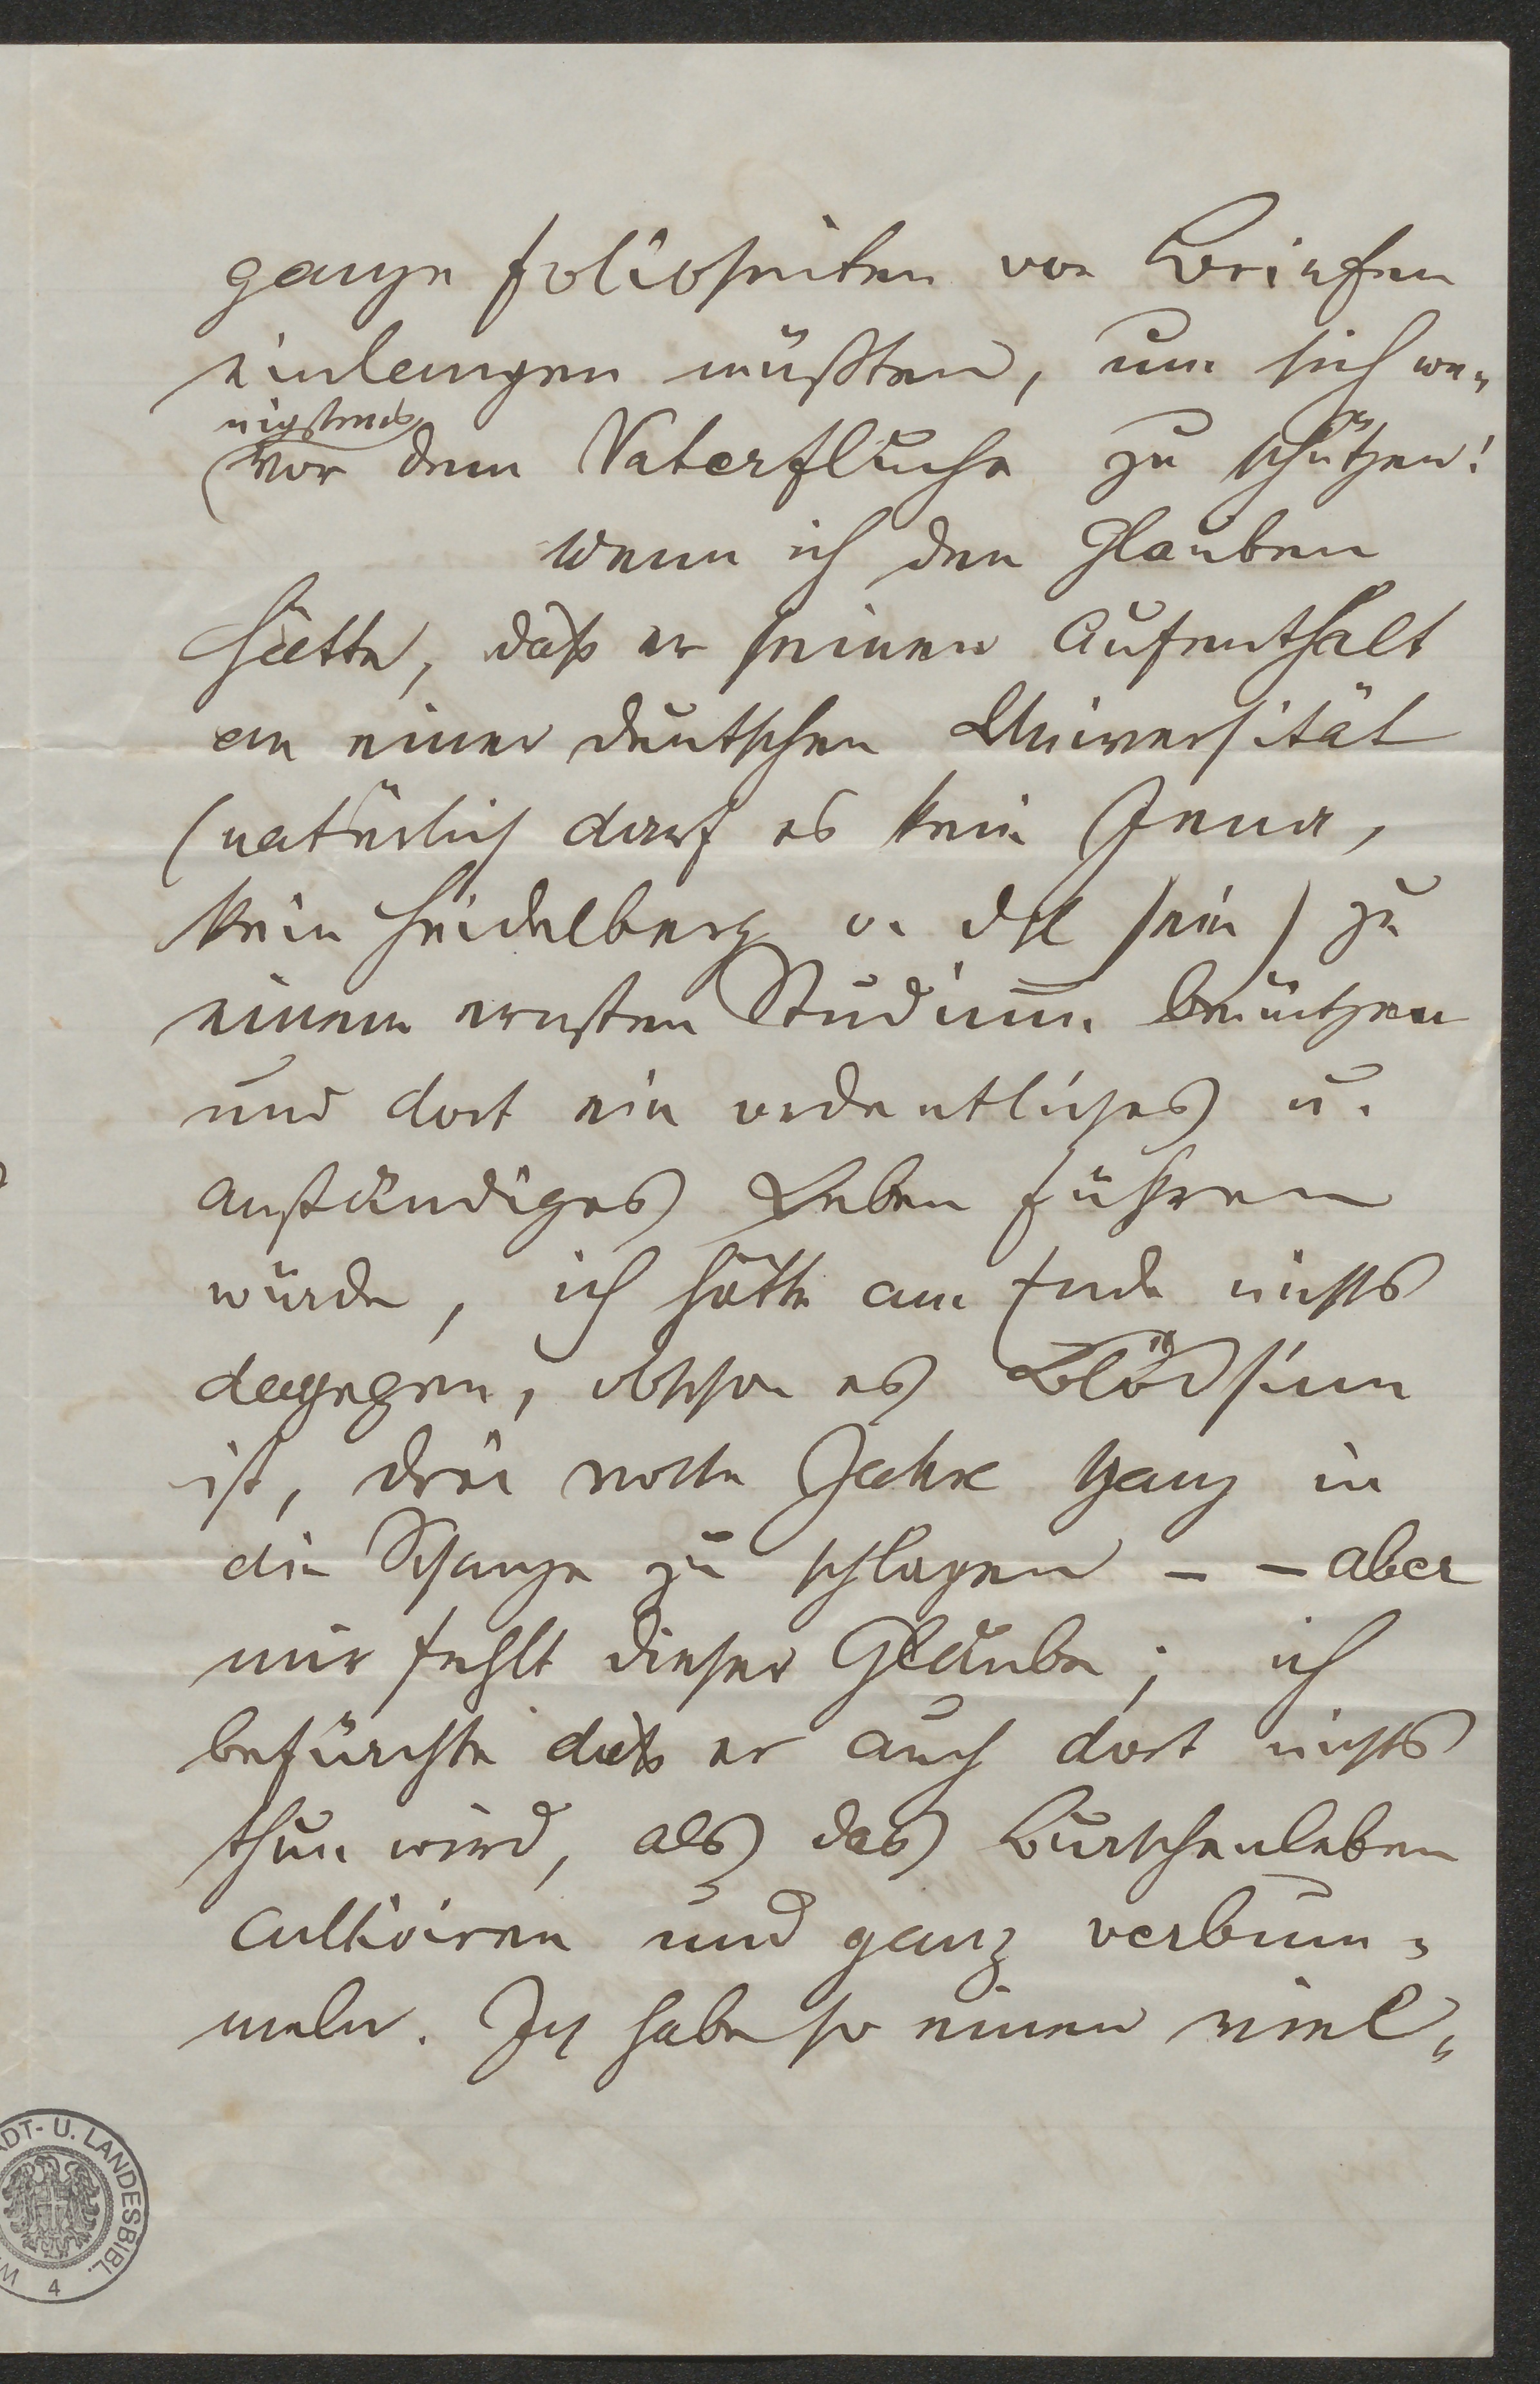 ganze Folioseiten von Briefen
einlangen müßten, um sich we-
nigstens
vor dem Vaterfluche zu schützen!
Wenn ich den Glauben
hätte, daß er seinen Aufenthalt
an einer deutschen Universität
(natürlich darf es kein Jena,
kein Heidelberg u. dgl sein) zu
einem ernsten Studium benützen
und dort ein ordentliches u.
anständiges Leben führen
würde, ich hätte am Ende nichts
dagegen, obschon es Blödsinn
ist, drei volle Jahre ganz in
die Schanze zu schlagen – – aber
mir fehlt dieser Glaube; ich
befürchte daß er auch dort nichts
thun wird, als das Burschenleben
cultiviren und ganz verbum-
meln. Ich habe so einen viel-
ADT- U. LANDESBIBL.
W
4